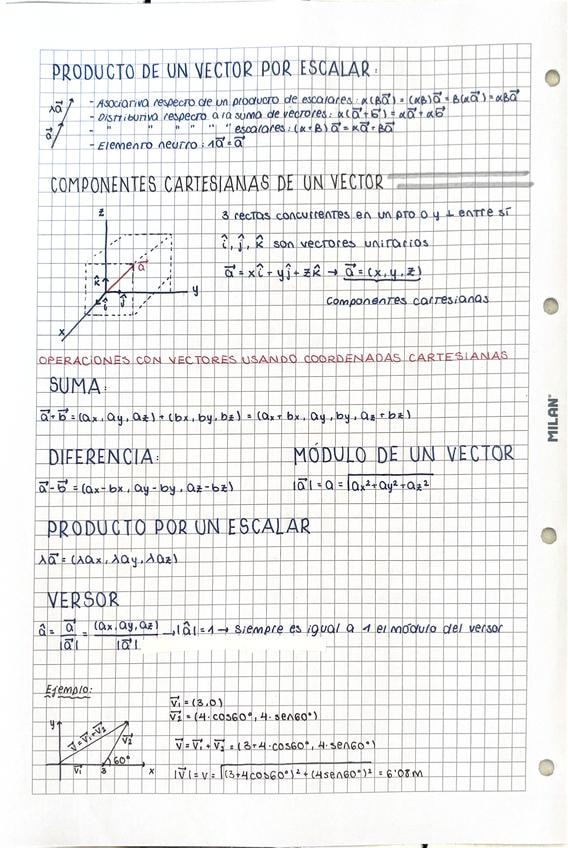 PRODUCTO DE UN VECTOR POR ESCALAR:
λa⃗
a⃗
- Asociativa respecto de un producto de escalares: α(βa⃗) = (αβ)a⃗ = β(αa⃗) = αβa⃗
- Distributiva respecto a la suma de vectores: α(a⃗+b⃗) = αa⃗+αb⃗
- " " " " " " escalares: (α+β)a⃗ = αa⃗+βa⃗
- Elemento neutro: 1a⃗ = a⃗
COMPONENTES CARTESIANAS DE UN VECTOR
z
a⃗
k̂
î
ĵ
y
x
3 rectas concurrentes en un pto O y ⊥ entre sí
î, ĵ, k̂ son vectores unitarios
a⃗ = xî + yĵ + zk̂ → a⃗ = (x, y, z)
componentes cartesianas
OPERACIONES CON VECTORES USANDO COORDENADAS CARTESIANAS
SUMA:
a⃗+b⃗ = (ax, ay, az) + (bx, by, bz) = (ax+bx, ay, by, az+bz)
DIFERENCIA:
a⃗-b⃗ = (ax-bx, ay-by, az-bz)
MÓDULO DE UN VECTOR
|a⃗| = a = √(ax²+ay²+az²)
PRODUCTO POR UN ESCALAR
λa⃗ = (λax, λay, λaz)
VERSOR
â = a⃗/|a⃗| = (ax, ay, az)/|a⃗| → |â| = 1 → siempre es igual a 1 el módulo del versor
Ejemplo:
y
V⃗=V⃗₁+V⃗₂
V⃗₂
60°
V⃗₁
3
x
V⃗₁ = (3,0)
V⃗₂ = (4·cos60°, 4·sen60°)
V⃗ = V⃗₁+V⃗₂ = (3+4·cos60°, 4·sen60°)
|V⃗| = v = √((3+4cos60°)²+(4sen60°)²) = 6'08m
MILAN®